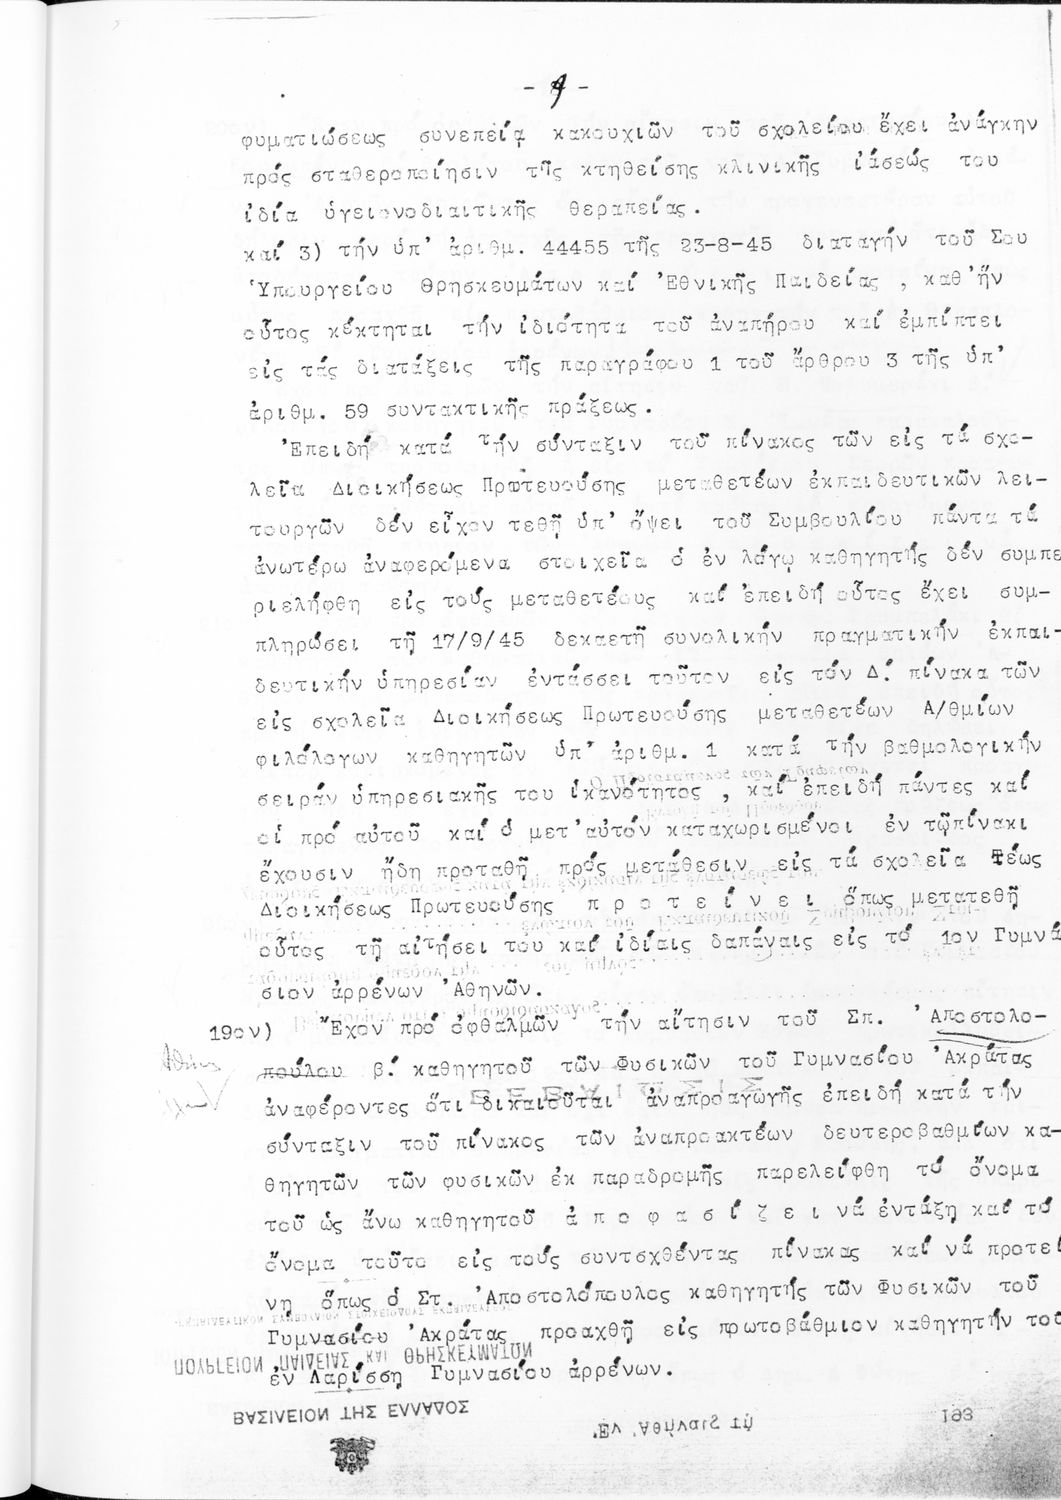 - 9 -
φυματιώσεως συνεπείᾳ κακουχιῶν τοῦ σχολείου ἔχει ἀνάγκην
πρός σταθεροποίησιν τῆς κτηθείσης κλινικῆς ἰάσεώς του
ἰδίᾳ ὑγειονοδιαιτικῆς θεραπείας.
καί 3) τήν ὑπ' ἀριθμ. 44455 τῆς 23-8-45 διαταγήν τοῦ Σου
Ὑπουργείου Θρησκευμάτων καί Ἐθνικῆς Παιδείας , καθ'ἥν
οὗτος κέκτηται τήν ἰδιότητα τοῦ ἀναπήρου καί ἐμπίπτει
εἰς τάς διατάξεις τῆς παραγράφου 1 τοῦ ἄρθρου 3 τῆς ὑπ'
ἀριθμ. 59 συντακτικῆς πράξεως.
Ἐπειδή κατά τήν σύνταξιν τοῦ πίνακος τῶν εἰς τά σχο-
λεῖα Διοικήσεως Πρωτευούσης μεταθετέων ἐκπαιδευτικῶν λει-
τουργῶν δέν εἶχον τεθῆ ὑπ' ὄψει τοῦ Συμβουλίου πάντα τά
ἀνωτέρω ἀναφερόμενα στοιχεῖα ὁ ἐν λόγῳ καθηγητής δέν συμπε
ριελήφθη εἰς τούς μεταθετέους καί ἐπειδή οὗτος ἔχει συμ-
πληρώσει τῇ 17/9/45 δεκαετῆ συνολικήν πραγματικήν ἐκπαι-
δευτικήν ὑπηρεσίαν ἐντάσσει τοῦτον εἰς τόν Δ΄. πίνακα τῶν
εἰς σχολεῖα Διοικήσεως Πρωτευούσης μεταθετέων Α/θμίων
φιλόλογων καθηγητῶν ὑπ' ἀριθμ. 1 κατά τήν βαθμολογικήν
σειράν ὑπηρεσιακῆς του ἱκανότητος , καί ἐπειδή πάντες καί
οἱ πρό αὐτοῦ καί ὁ μετ'αὐτόν καταχωρισμένοι ἐν τῷπίνακι
ἔχουσιν ἤδη προταθῆ πρός μετάθεσιν εἰς τά σχολεῖα Τέως
Διοικήσεως Πρωτευούσης π ρ ο τ ε ί ν ε ι ὅπως μετατεθῆ
οὗτος τῇ αἰτήσει του καί ἰδίαις δαπάναις εἰς τό 1ον Γυμνά
σιον ἀρρένων Ἀθηνῶν.
19ον) Ἔχον πρό ὀφθαλμῶν τήν αἴτησιν τοῦ Σπ. Ἀποστολο-
πούλου β΄. καθηγητοῦ τῶν Φυσικῶν τοῦ Γυμνασίου Ἀκράτας
ἀναφέροντες ὅτι δικαιοῦται ἀναπροαγωγῆς ἐπειδή κατά τήν
σύνταξιν τοῦ πίνακος τῶν ἀναπροακτέων δευτεροβαθμίων κα-
θηγητῶν τῶν φυσικῶν ἐκ παραδρομῆς παρελείφθη τό ὄνομα
τοῦ ὡς ἄνω καθηγητοῦ ἀ π ο φ α σ ί ζ ε ι νά ἐντάξη καί τό
ὄνομα τοῦτο εἰς τούς συντσχθέντας πίνακας καί νά προτεί
νη ὅπως ὁ Στ. Ἀποστολόπουλος καθηγητής τῶν Φυσικῶν τοῦ
Γυμνασίου Ἀκράτας προαχθῆ εἰς πρωτοβάθμιον καθηγητήν τοῦ
ΥΠΟΥΡΓΕΙΟΝ ΠΑΙΔΕΙΑΣ ΚΑΙ ΘΡΗΣΚΕΥΜΑΤΩΝ
ἐν Λαρίσση Γυμνασίου ἀρρένων.
ΒΑΣΙΛΕΙΟΝ ΤΗΣ ΕΛΛΑΔΟΣ
Ἐν Ἀθήναις τῇ
193